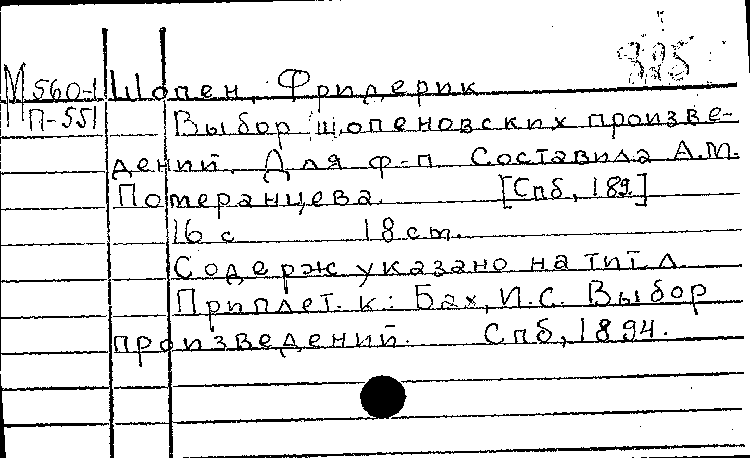 М 560-1 Шопен, Фридерик
П-551 Выбор шопеновских произве-
дений. Для ф-п Составила А.М.
Померанцева. [Спб, 189]
16 с 18 cm.
Содерж указано на тит л.
Приплет. к: Бах, И.С. Выбор
произведений. Спб, 1894.